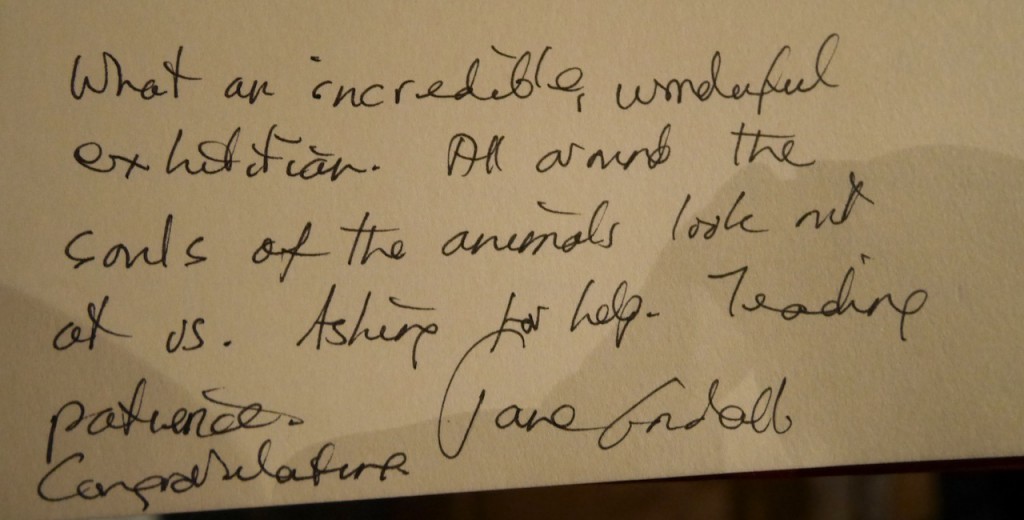 What an incredible, wonderful
exhibition. All around the
souls of the animals look out
at us. Asking for help. Teaching
patience. Jane Goodall
Congratulations